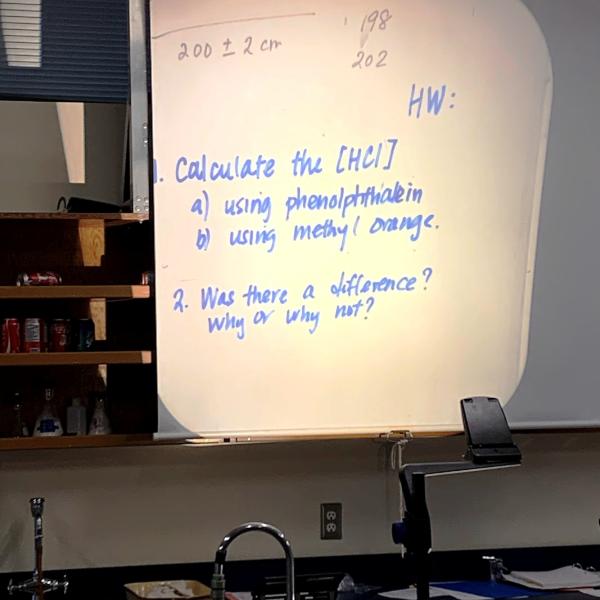 200 ± 2 cm
198
202
HW:
1. Calculate the [HCl]
a) using phenolphthalein
b) using methyl orange.
2. Was there a difference?
Why or why not?